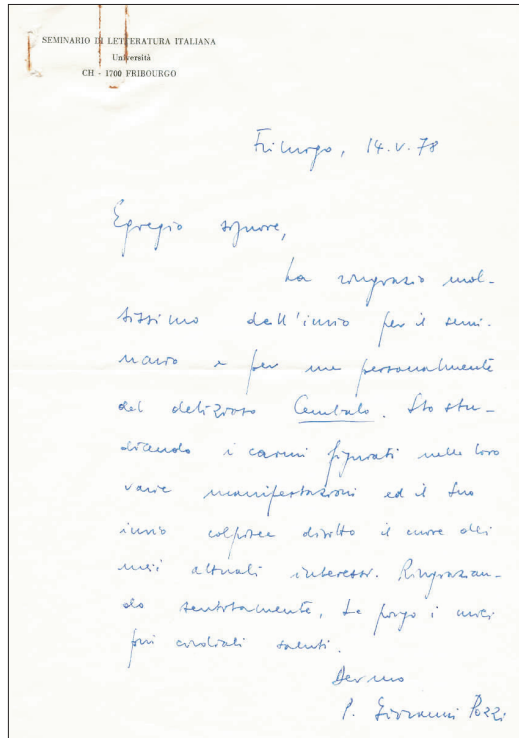 SEMINARIO DI LETTERATURA ITALIANA
Università
CH - 1700 FRIBOURGO
Friburgo, 14.V.78
Egregio signore,
La ringrazio mol-
tissimo dell'invio per il semi-
nario e per me personalmente
del delizioso Cembalo. Sto stu-
diando i carmi figurati nelle loro
varie manifestazioni ed il Suo
invio colpisce diritto il cuore dei
miei attuali interessi. Ringrazian-
do sentitamente, Le porgo i miei
più cordiali saluti.
Dev.mo
P. Giovanni Pozzi